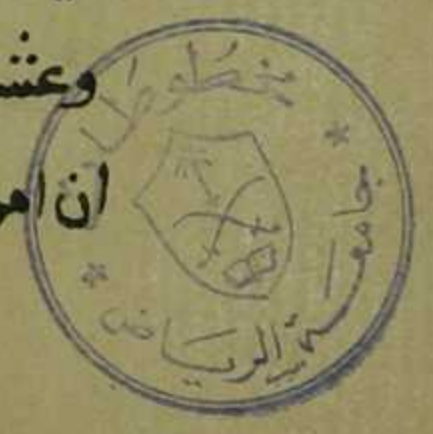 وعشـ
ان امر
مخطوطات
جامعة الرياض